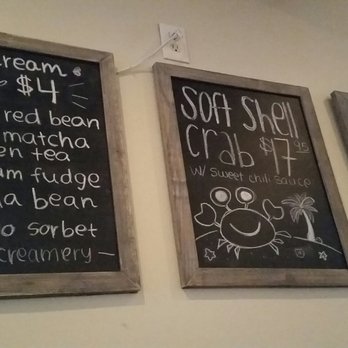 cream
$4
red bean
matcha
en tea
am fudge
a bean
o sorbet
creamery
Soft Shell
Crab $17.95
w/ sweet chili sauce